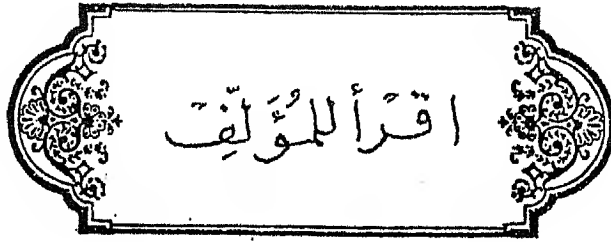 اقرأ للمُؤَلِّفِ